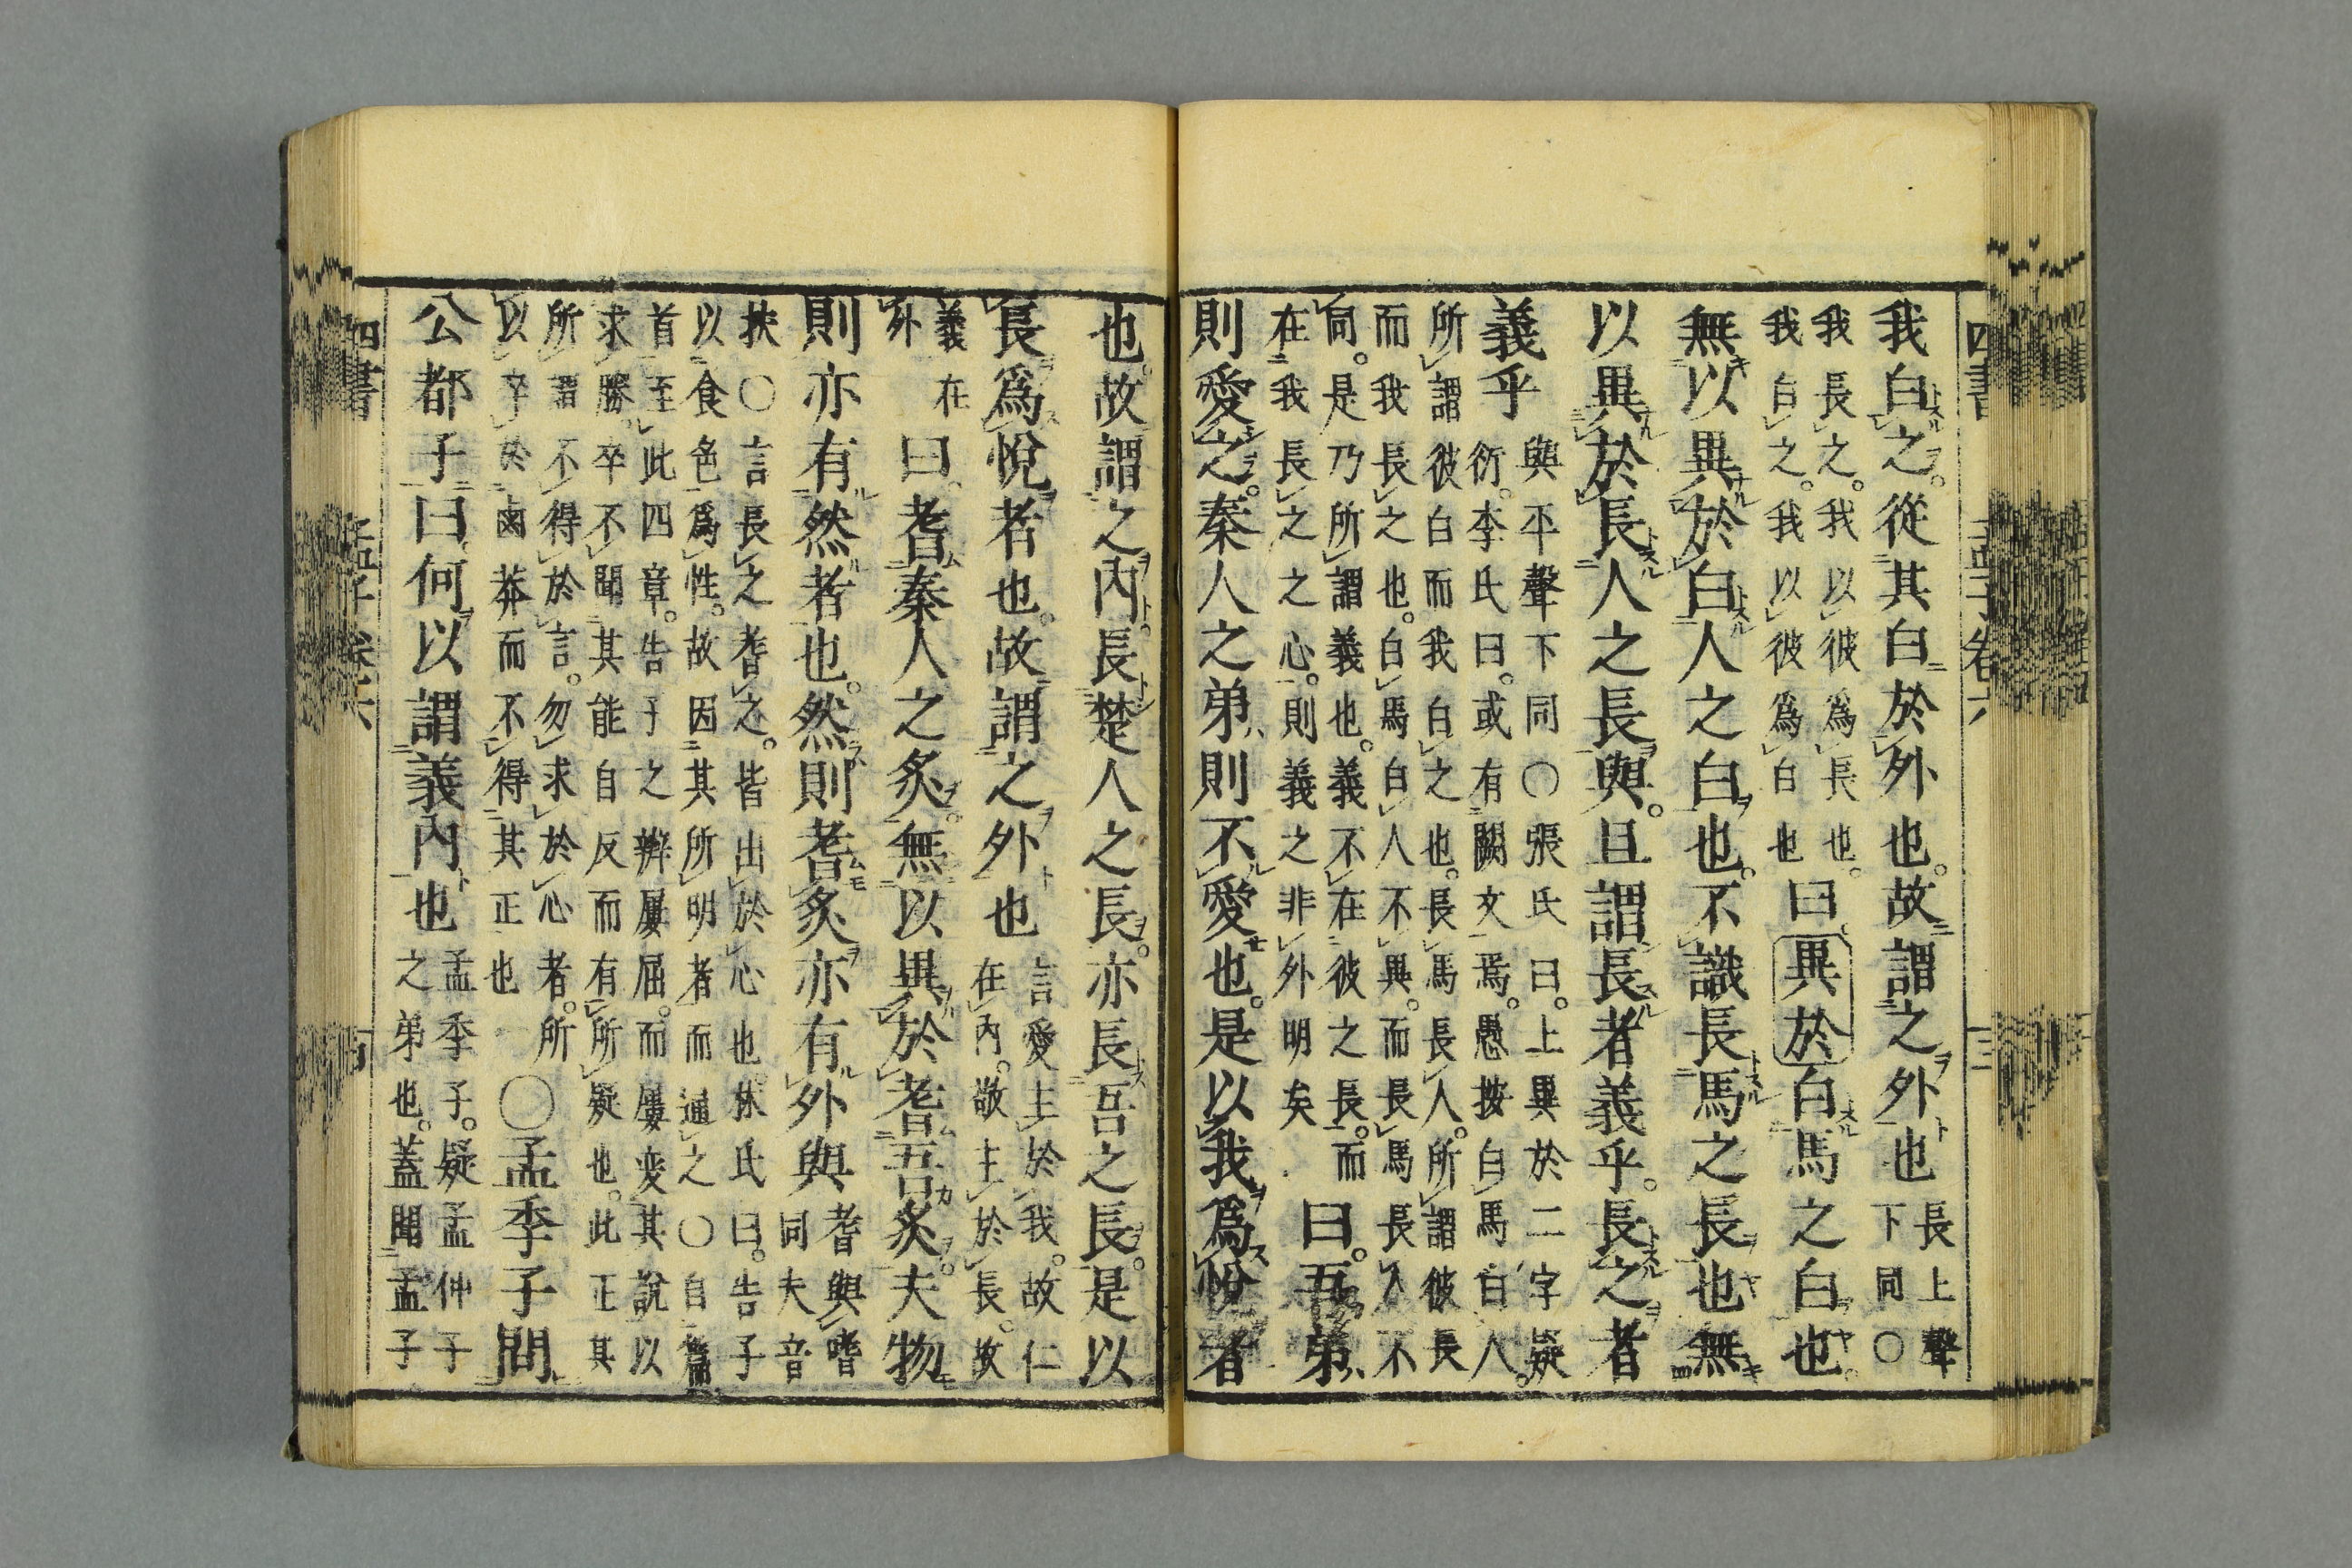 我白之。從其白於外也。故謂之外也 長上聲下同○
我長之。我以彼爲長也。我白之。我以彼爲白也 曰異於白馬之白也。
無以異於白人之白也。不識長馬之長也無
以異於長人之長與。且謂長者義乎。長之者
義乎 與平聲下同○張氏曰。上異於二字疑衍。李氏曰。或有闕文焉。愚按白馬白人。
所謂彼白而我白之也。長馬長人。所謂彼長
而我長之也。白馬白人不異。而長馬長人不
同。是乃所謂義也。義不在彼之長。而
在我長之之心。則義之非外明矣 曰。吾弟
則愛之。秦人之弟則不愛也。是以我爲悅者
也。故謂之內。長楚人之長。亦長吾之長。是以
長爲悅者也。故謂之外也 言愛主於我。故仁在內。敬主於長。故
義在外 曰。耆秦人之炙。無以異於耆吾炙。夫物
則亦有然者也。然則耆炙亦有外與 耆與嗜同夫音
扶○言長之耆之。皆出於心也。林氏曰。告子
以食色爲性。故因其所明者而通之○自篇
首至此四章。告子之辨屢屈。而屢変其說以
求勝。卒不聞其能自反而有所疑也。此正其
所謂不得於言。勿求於心者。所
以卒於鹵莽而不得其正也 ○孟季子問
公都子曰何以謂義內也 孟季子。疑孟仲子之弟也。蓋聞孟子
四書 孟子卷六 三
四書 孟子卷六